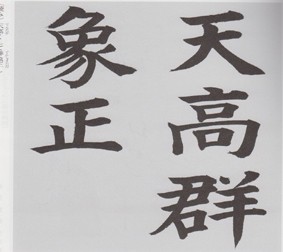 天高群
象正